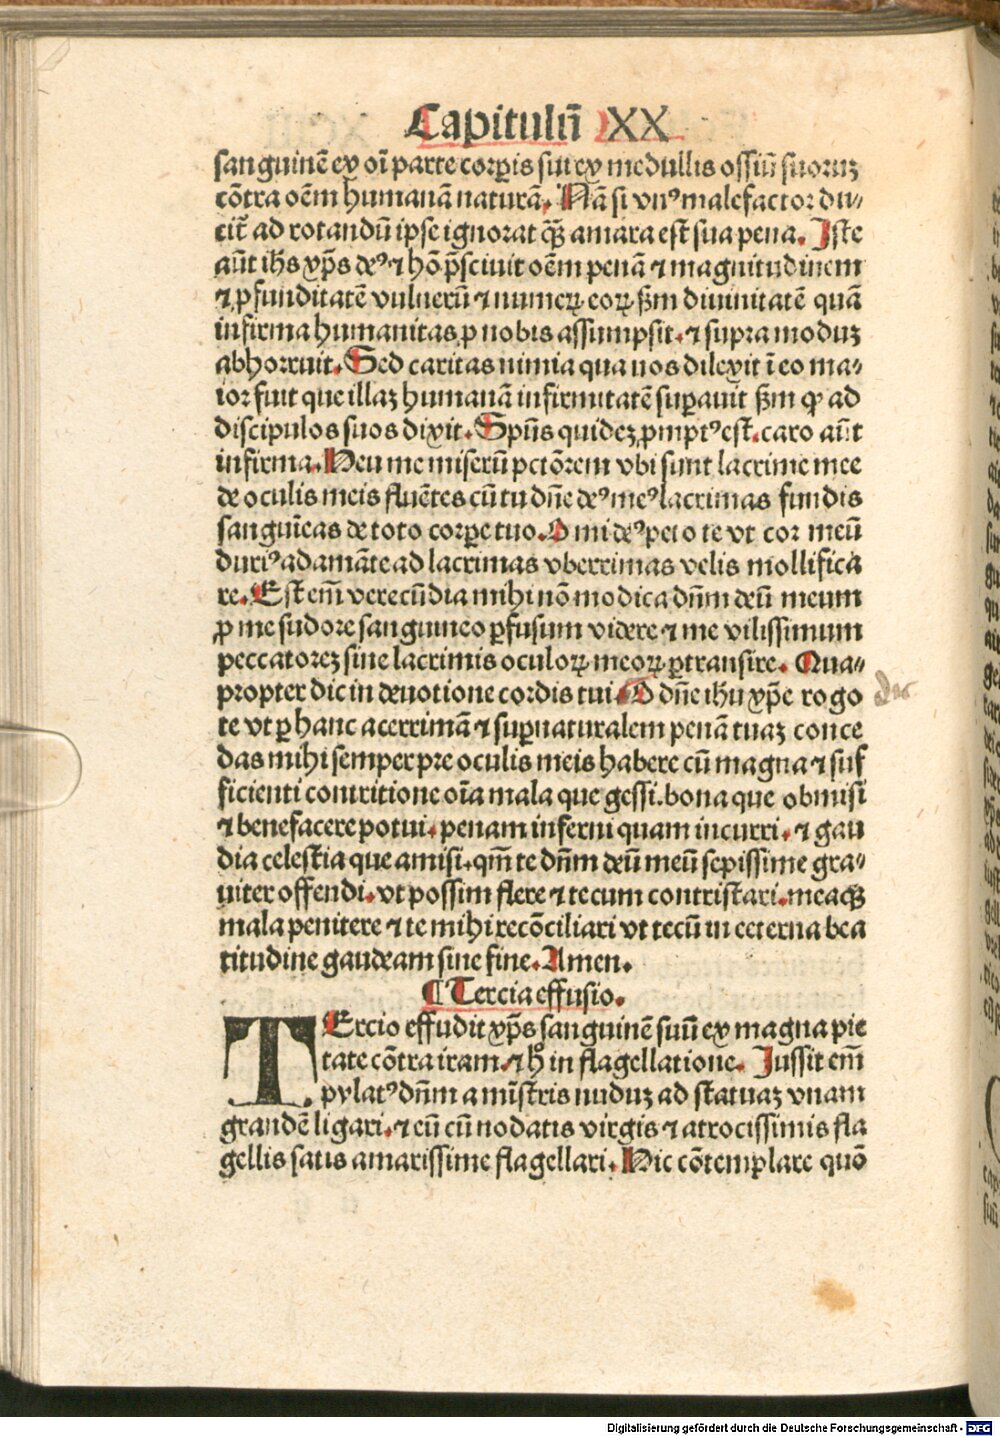 Capitulū XX
sanguinē ex oī parte corꝑis sui ex medullis ossiū suoruꝫ
cōtra oēm humanā naturā. Nā si vnꝰ malefactor du⸗
cit̄ ad rotandū ipse ignorat qꝫ̄ amara est sua pena. Iste
aūt ihs xp̄s deꝰ ⁊ hō p̄sciuit oēm penā ⁊ magnitudinem
⁊ ꝓfunditatē vulnerū ⁊ numeꝝ eoꝝ ẜm diuinitatē quā
infirma humanitas ꝓ nobis assumpsit. ⁊ supra moduꝫ
abhorruit. Sed caritas nimia qua nos dilexit ī eo ma⸗
ior fuit que illaꝫ humanā infirmitatē suꝑauit ẜm ꝙ ad
discipulos suos dixit. Spūs quideꝫ ꝓmptꝰ est. caro aūt
infirma. Heu me miserū pctōrem vbi sunt lacrime mee
de oculis meis fluētes cū tu dn̄e deꝰ meꝰ lacrimas fundis
sanguīeas de toto corꝑe tuo. O mi deꝰ peto te vt cor meū
duriꝰ adamāte ad lacrimas vberrimas velis mollifica
re. Est em̄ verecūdia mihi nō modica dn̄m deū meum
ꝓ me sudore sanguineo ꝑfusum videre ⁊ me vilissimum
peccatoreꝫ sine lacrimis oculoꝝ meoꝝ ꝑtransire. Qua⸗
propter dic in deuotione cordis tui. O dn̄e ihu xp̄e rogo
te vt ꝑ hanc acerrimā ⁊ suꝑnaturalem penā tuaꝫ conce
das mihi semper pre oculis meis habere cū magna ⁊ suf
ficienti contritione oīa mala que gessi. bona que obmisi
⁊ benefacere potui. penam inferni quam incurri. ⁊ gau
dia celestia que amisi. qm̄ te dn̄m deū meū sepissime gra⸗
uiter offendi. vt possim flere ⁊ tecum contristari. meaqꝫ
mala penitere ⁊ te mihi recōciliari vt tecū in eterna bea
titudine gaudeam sine fine. Amen.
¶ Tercia effusio.
TErcio effudit xp̄s sanguinē suū ex magna pie
tate cōtra iram. ⁊ hͦ in flagellatione. Iussit em̄
pylatꝰ dn̄m a mīstris nuduꝫ ad statuaꝫ vnam
grandē ligari. ⁊ eū cū nodatis virgis ⁊ atrocissimis fla
gellis satis amarissime flagellari. Hic cōtemplare quō
Digitalisierung gefördert durch die Deutsche Forschungsgemeinschaft - DFG